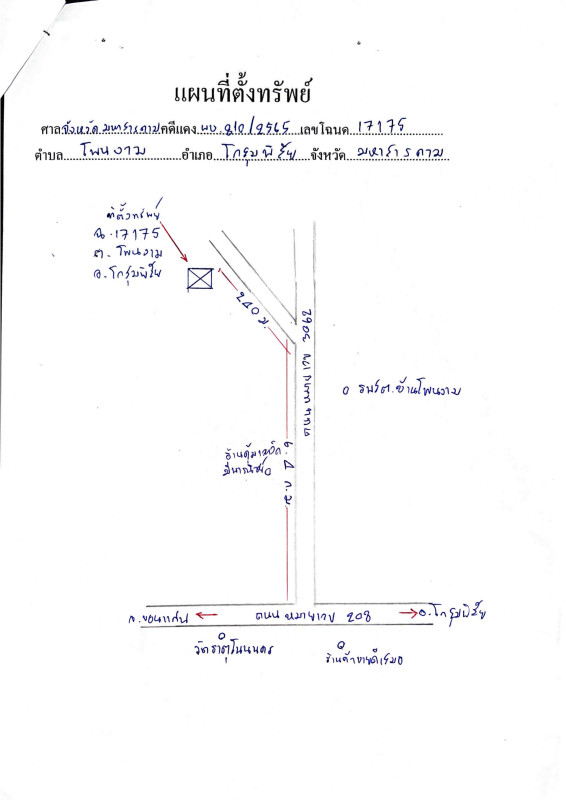 แผนที่ตั้งทรัพย์
ศาลจังหวัดมหาสารคามคดีแดง ผบ.210/2565 เลขโฉนด 17175
ตำบล โพนงาม อำเภอ โกสุมพิสัย จังหวัด มหาสารคาม
ที่ตั้งทรัพย์
ฉ.17175
ต. โพนงาม
อ.โกสุมพิสัย
240 ม.
ถนนหมายเลข 2062
รพ.สต.บ้านโพนงาม
ร้านคุ้ม
มินิมาร์ท
ก.ม
จ.ขอนแก่น ถนนหมายเลข 208 อ.โกสุมพิสัย
วัดธาตุโนนนคร
ร้านค้า